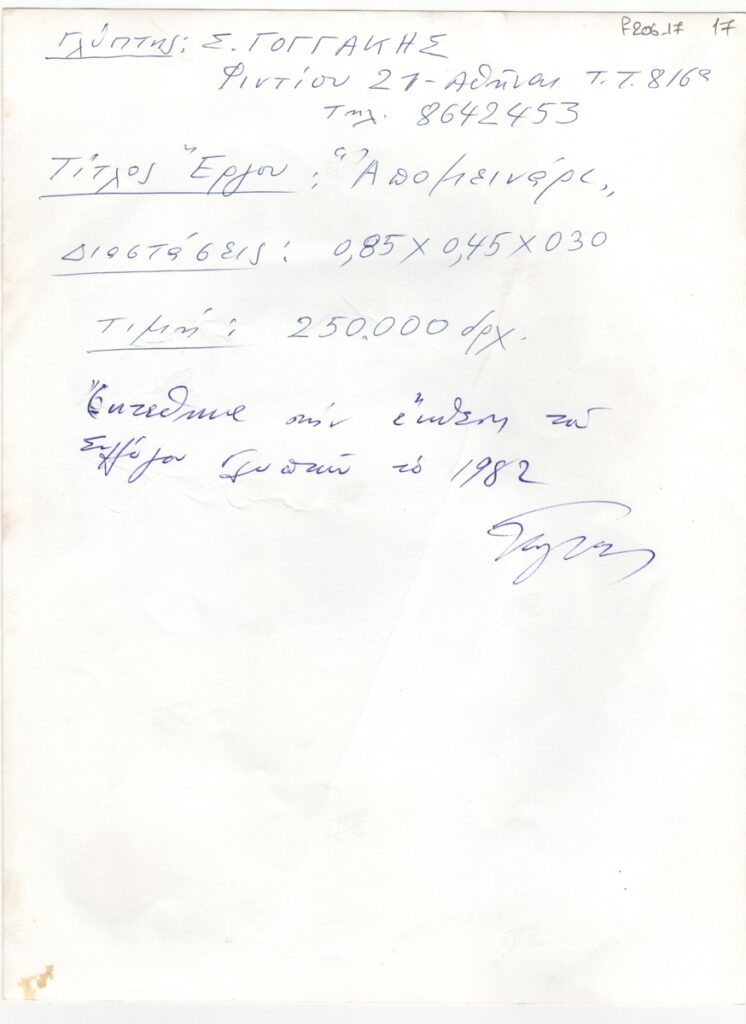 F206.17 17
Γλύπτης: Σ. ΓΟΓΓΑΚΗΣ
Φιντίου 21-Αθήναι Τ.Τ. 816
Τηλ. 8642453
Τίτλος Ἔργου: "Ἀπομεινάρι„
Διαστάσεις: 0,85 x 0,45 x 030
Τιμή: 250.000 δρχ.
Ἐκτέθηκε στήν ἔκθεση τοῦ
Συλλόγου Γλυπτῶν τό 1982